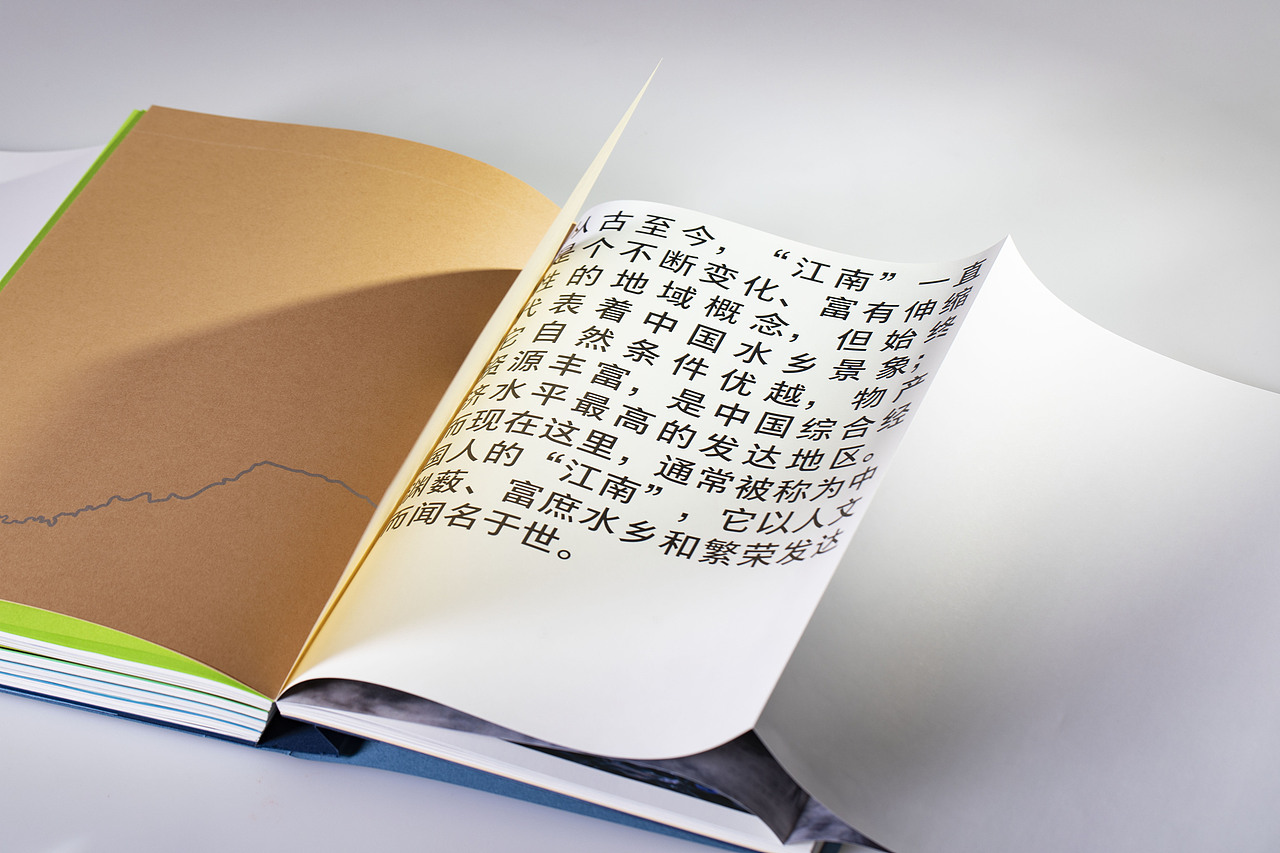 从古至今，“江南”一直
是个不断变化、富有伸缩
性的地域概念，但始终
代表着中国水乡景象；
它自然条件优越，物产
资源丰富，是中国综合经
济水平最高的发达地区。
而现在这里，通常被称为中
国人的“江南”，它以人文
渊薮、富庶水乡和繁荣发达
而闻名于世。